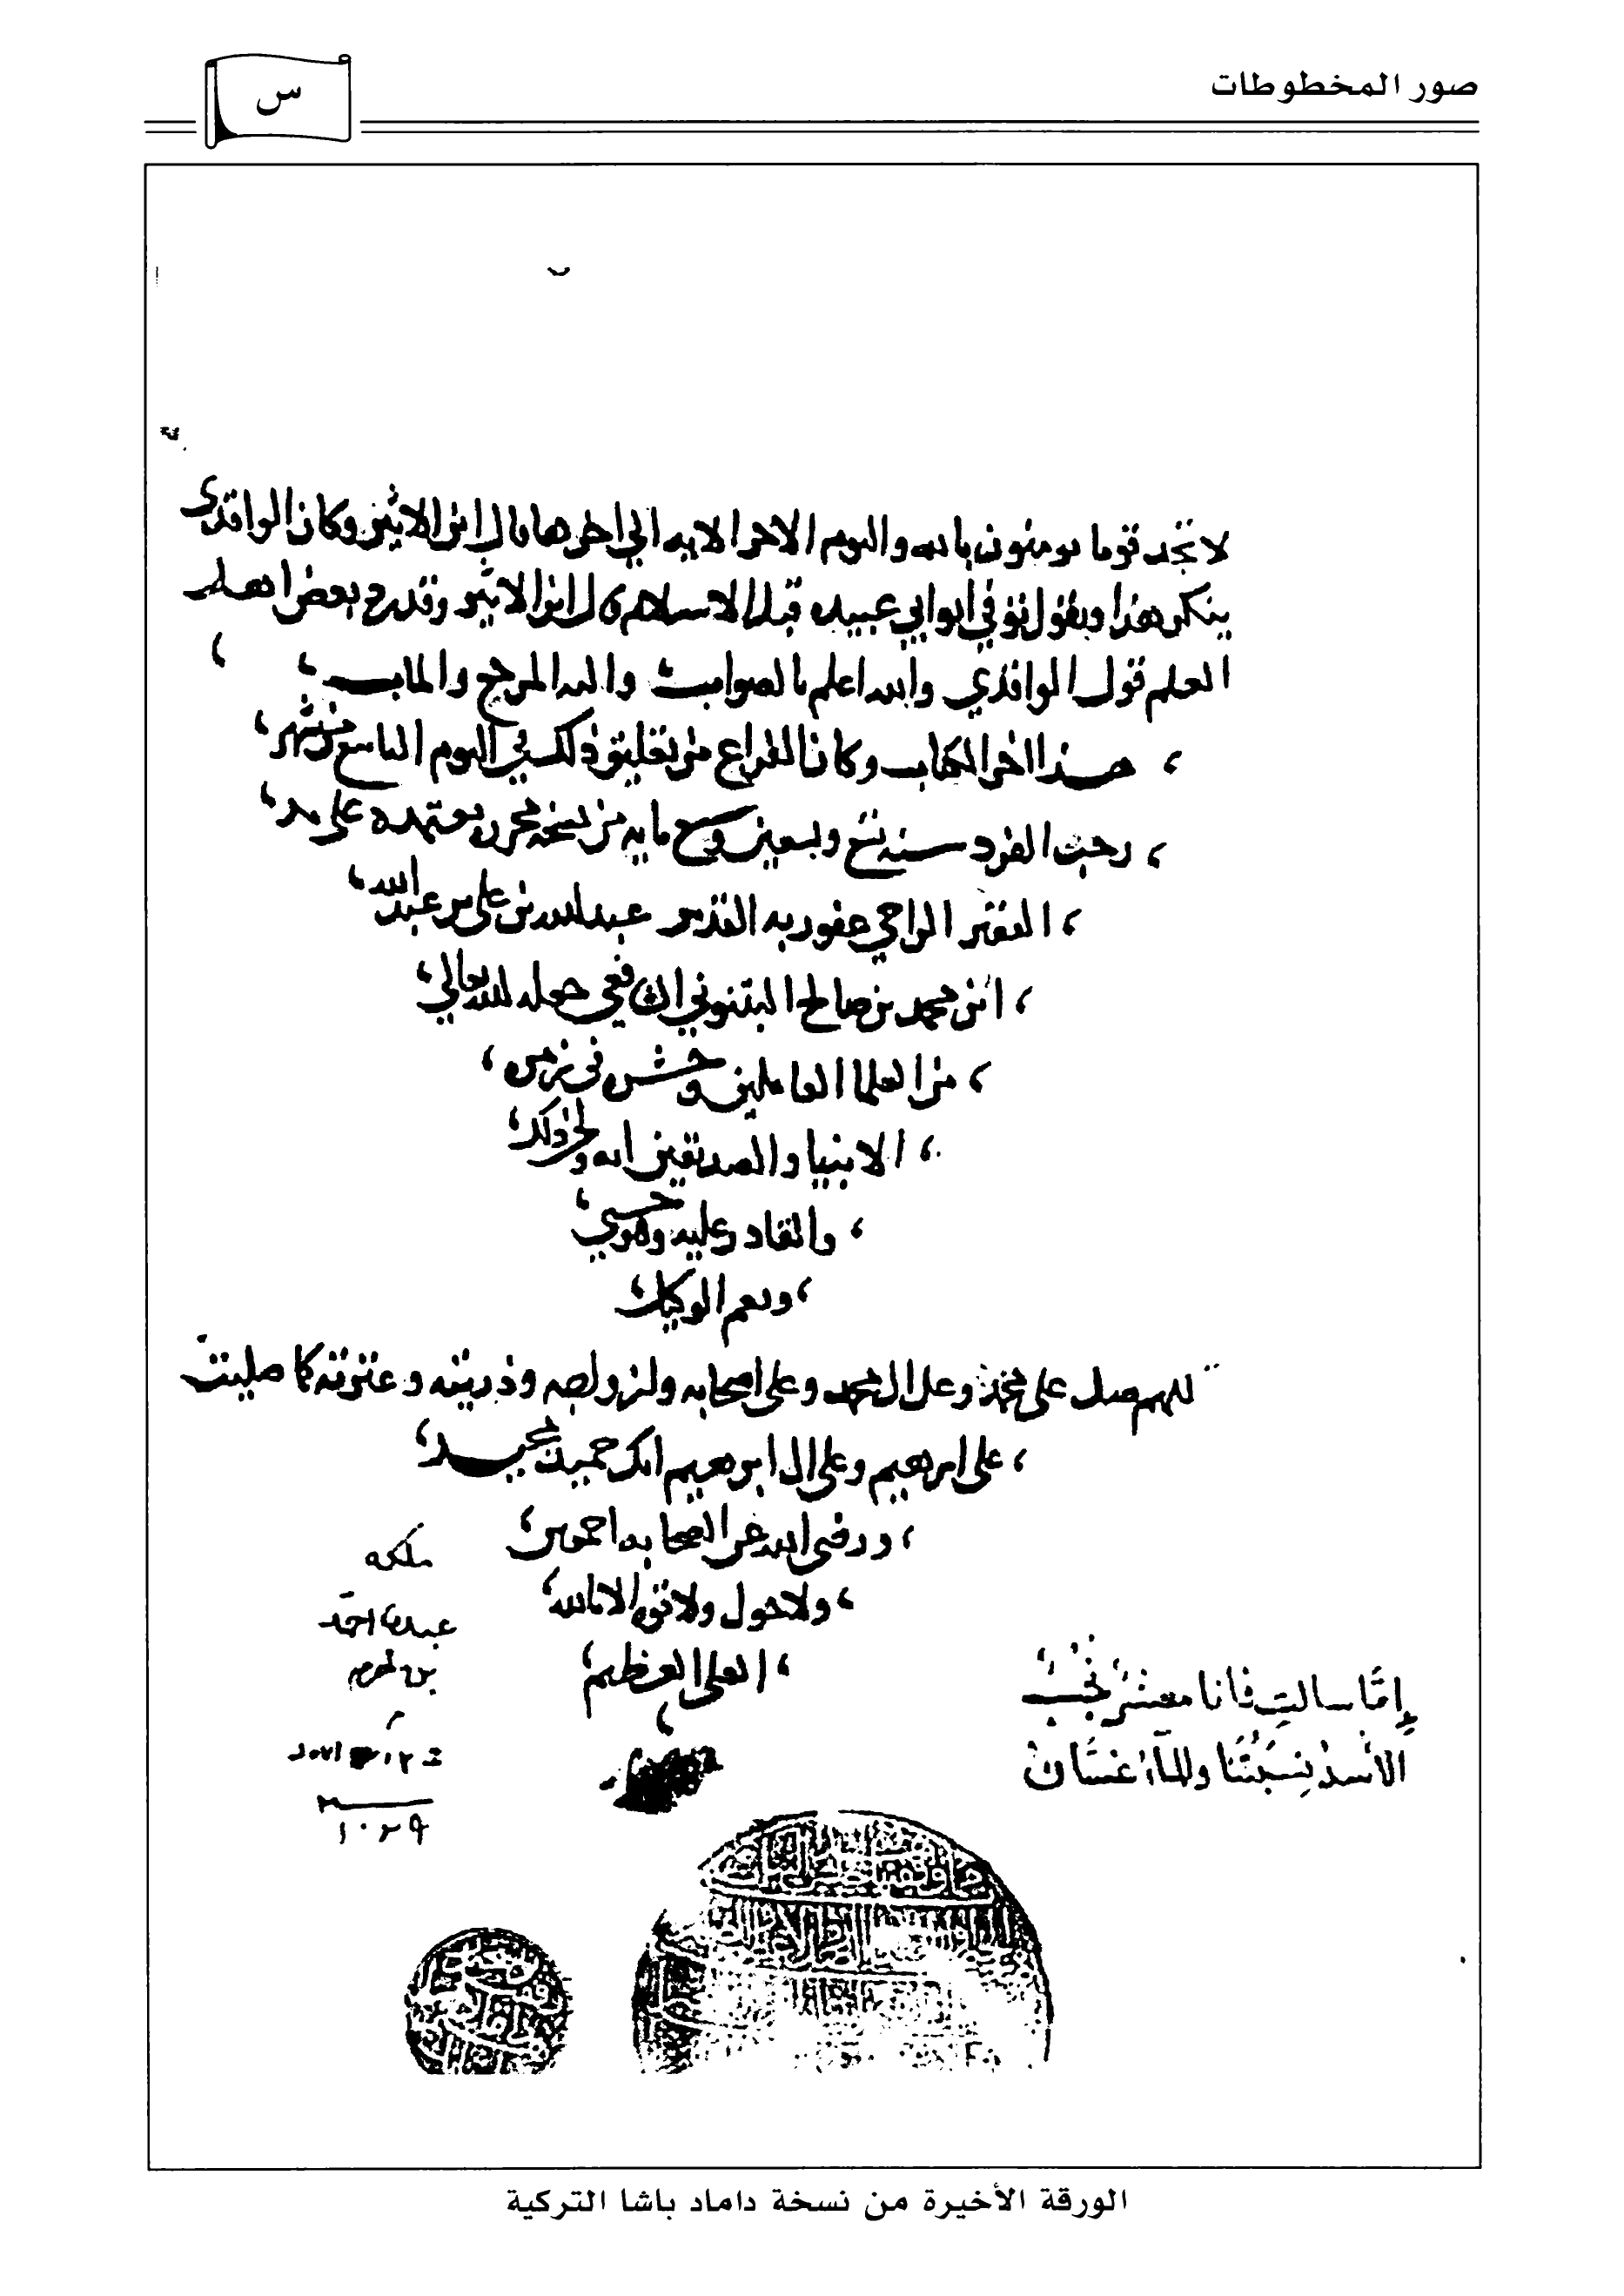 صور المخطوطات
س
لا تجد قوما يومنون بالله واليوم الاخر الايه الي اخرها قال ابن الاثير وكان الواقدي
ينكر هذا ويقول توفي ابو ابي عبيده قبل الاسلام قال ابن الاثير وقد رد بعض اهل
العلم قول الواقدي والله اعلم بالصواب واليه المرجع والماب
هذا اخر الكتاب وكان الفراغ من تعليق ذلك في اليوم التاسع من شهر
رجب الفرد سنه تسع وسبعين وسبع مايه من نسخه محرره معتمده على يد
الفقير الراجي عفو ربه القدير عبد الله بن علي بن عبد الله
ابن محمد بن صالح البتنوني الشافعي جعله الله تعالي
من العلما العاملين وحشره في زمره
الانبيا والصديقين انه ولي ذلك
والقادر عليه وهو حسبي
ونعم الوكيل
اللهم صل على محمد وعلى ال محمد وعلى اصحابه وازواجه وذريته وعترته كما صليت
على ابرهيم وعلى ال ابرهيم انك حميد مجيد
ورضى الله عن الصحابه اجمعين
ولا حول ولا قوه الا بالله
العلى العظيم
ملكه
احمد
بن
١٠٢٩
إمّا سالت فانا معشر نجب
الأسد نسبتنا والماء غسّان
الورقة الأخيرة من نسخة داماد باشا التركية